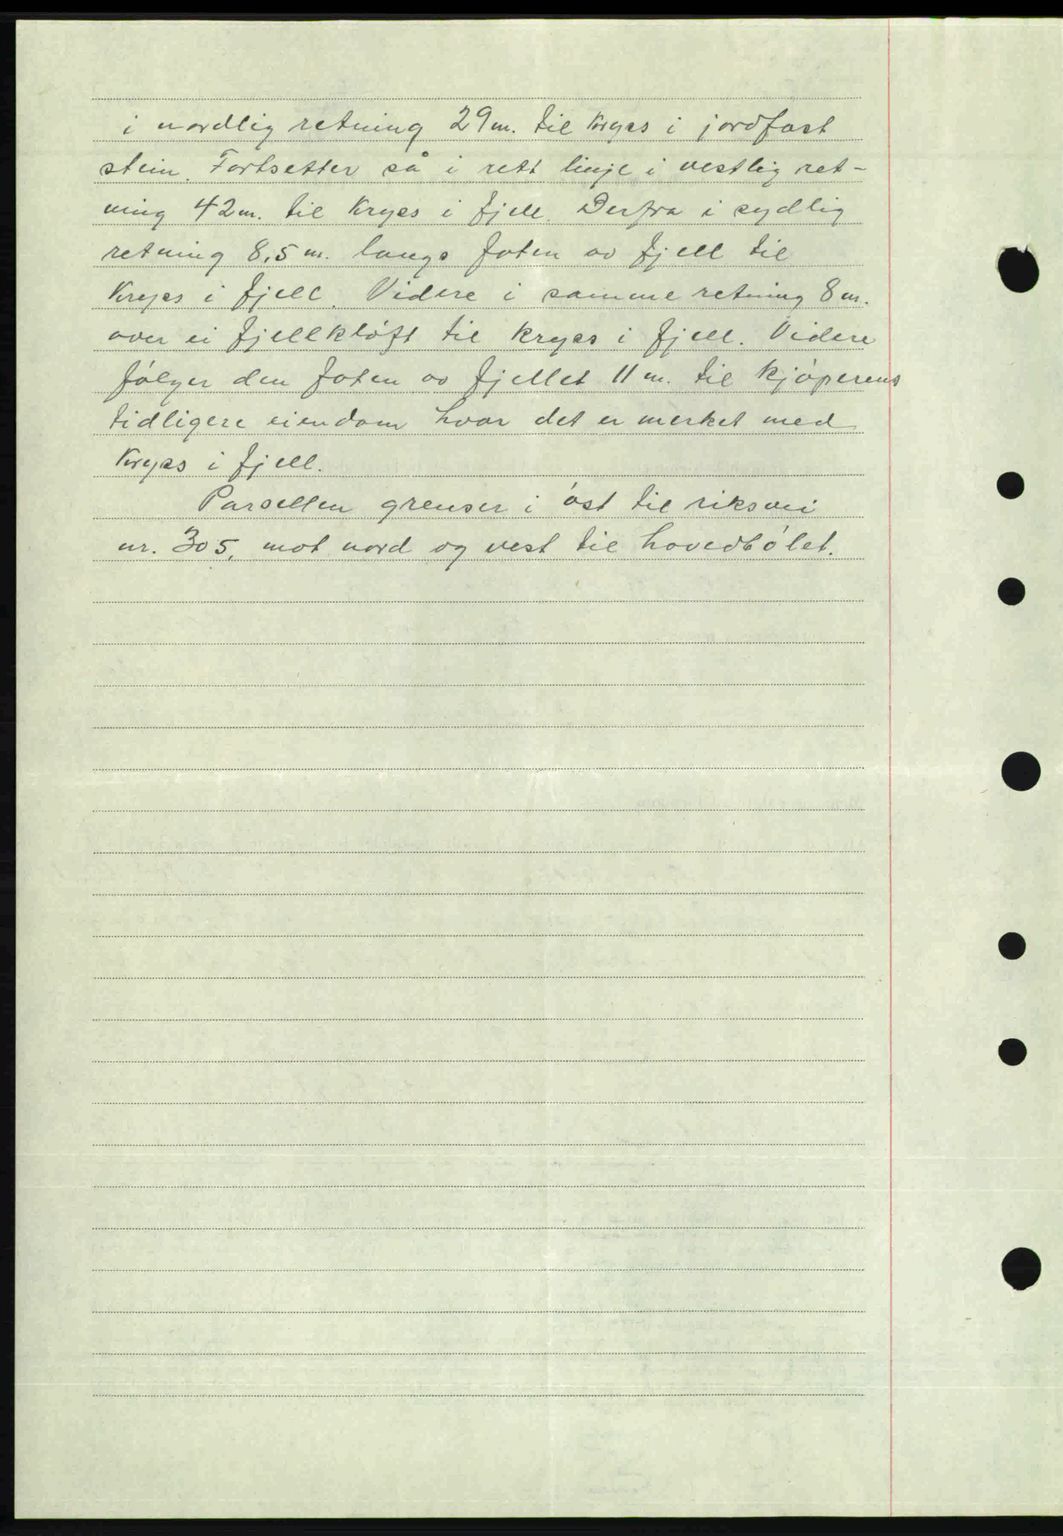 i nordlig retning 29 m. til kryss i jordfast
stein. Fortsetter så i rett linje i vestlig ret-
ning 42 m. til kryss i fjell. Derfra i sydlig
retning 8,5 m. langs foten av fjell til
kryss i fjell. Videre i samme retning 8 m.
over ei fjellkløft til kryss i fjell. Videre
følger den foten av fjellet 11 m. til kjøperens
tidligere eiendom hvor det er merket med
kryss i fjell.
Parsellen grenser i øst til riksvei
nr. 305, mot nord og vest til hovedbølet.